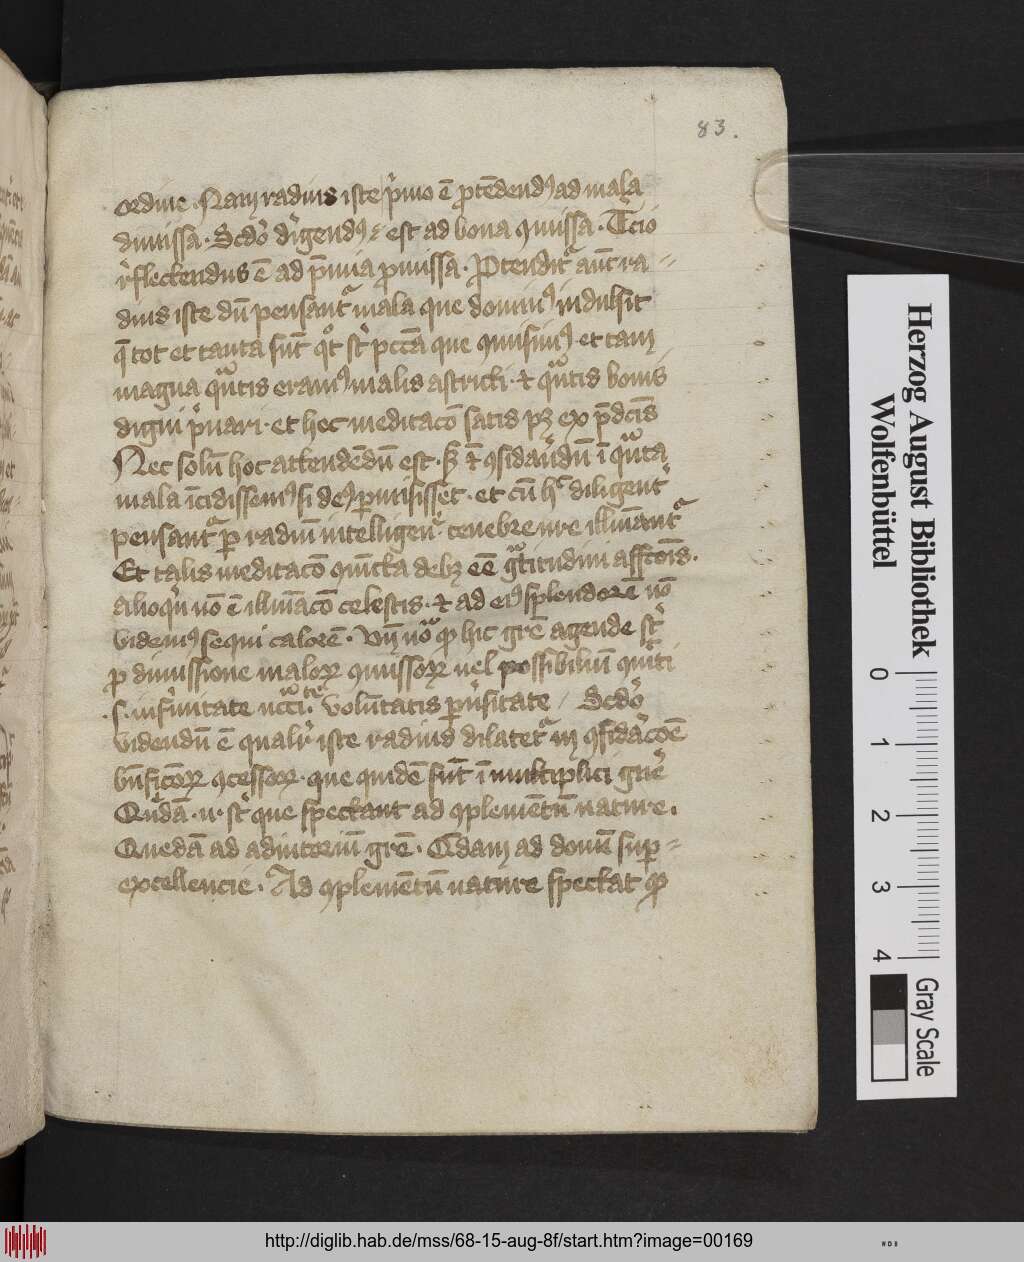 83.
ordine. Nam radius iste p̾mo ē p̱tēdendꝰ ad mala
dimissa. Scdo̾ di̾gendꝰ est ad bona ꝯmissa. T̾cio
r̾flectendus ē ad p̄mia ꝓmissa. Ptendit᷑ aut̄ ra=
dius iste dū pensant᷑ mala que dominꝰ indulsit
q̄ tot et tanta su̅t qͦt st̾ pcc̄a que ꝯmisimꝰ et tam
magna qᷓntis eramꝰ malis astricti. ⁊ qᷓntis bonis
digni p̾uari. et hec meditac̄o satis pꝫ ex p̄dc̄is
Nec solu̅ hoc attende̅du̅ est. sꝫ ⁊ ꝯsida̾ndu̅ ī qᷓnta
mala īcidissemꝰ si deꝰ ꝑmisisset. et cū hͨ diligent̾
pensant᷑ ꝑ radiū intelligen̾. tenebre nr̄e illuīant᷑
Et talis meditac̄o ꝯiu̅cta debꝫ ēe gᷓtitudini affc̄ois.
alioqͥn no̅ ē illuīac̄o celestis. ⁊ ad eiꝰ splendorē no̅
videmꝰ sequi calorē. Vn̄ noᷓ ꝙ hic gr̄e agende st̾
ꝓ dimissione maloꝝ ꝯmissoꝝ uel possibiliū ꝯmitti
.s. infi̾mitate ucti. te volu̅tatis ꝑu̾sitate / Scdo̾
videndū ē qualit̾ iste radius dilatet᷑ in ꝯsida̾c̄oē
bn̄ficioꝝ ꝯcessoꝝ. que quidē su̅t ī multiplici gn̾e
Qᷓdā .n. st̾ que spectant ad ꝯpleme̅tū nature.
Quedā ad adiutoriū gr̄e. Qᷓdam ad donū suꝑ=
excellencie. Ad ꝯpleme̅tū nature spectat ꝙ
Herzog August Bibliothek
Wolfenbüttel
0 1 2 3 4
Gray Scale
http://diglib.hab.de/mss/68-15-aug-8f/start.htm?image=00169